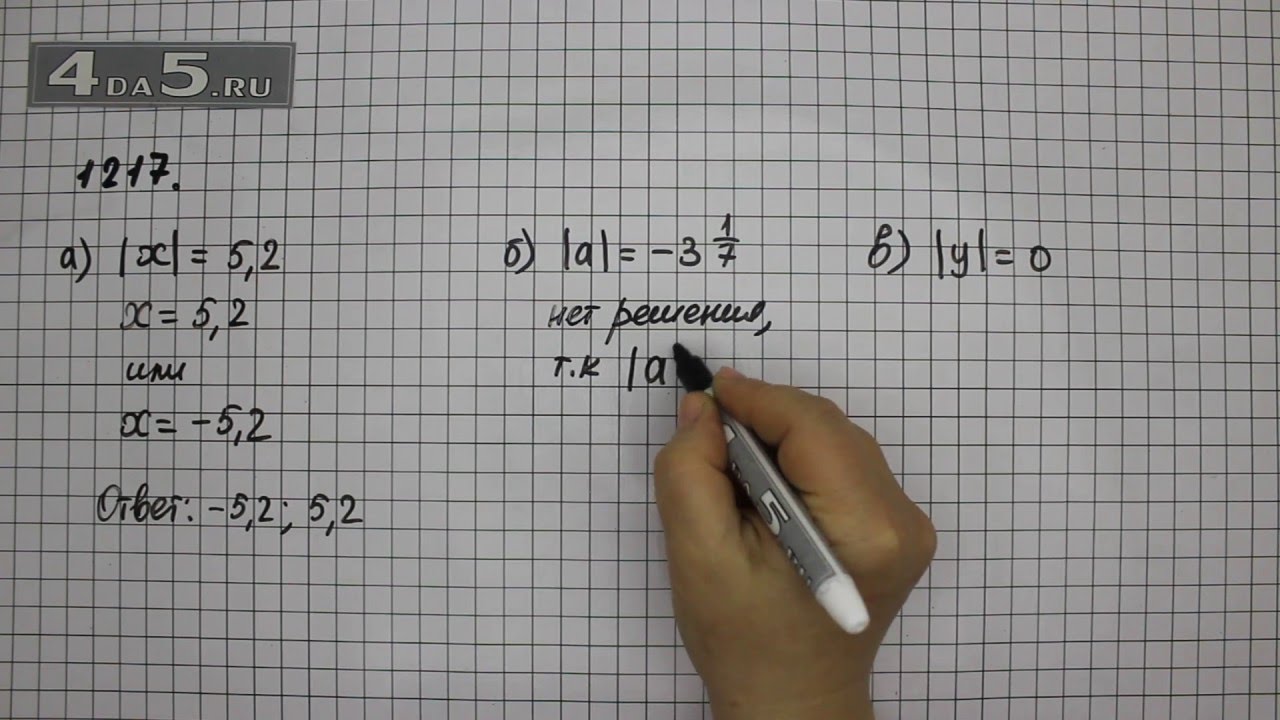 4DA5.RU
1217.
а) |x| = 5,2
x = 5,2
или
x = -5,2
Ответ: -5,2; 5,2
б) |a| = -3 1/7
нет решения,
т.к |a
в) |y| = 0